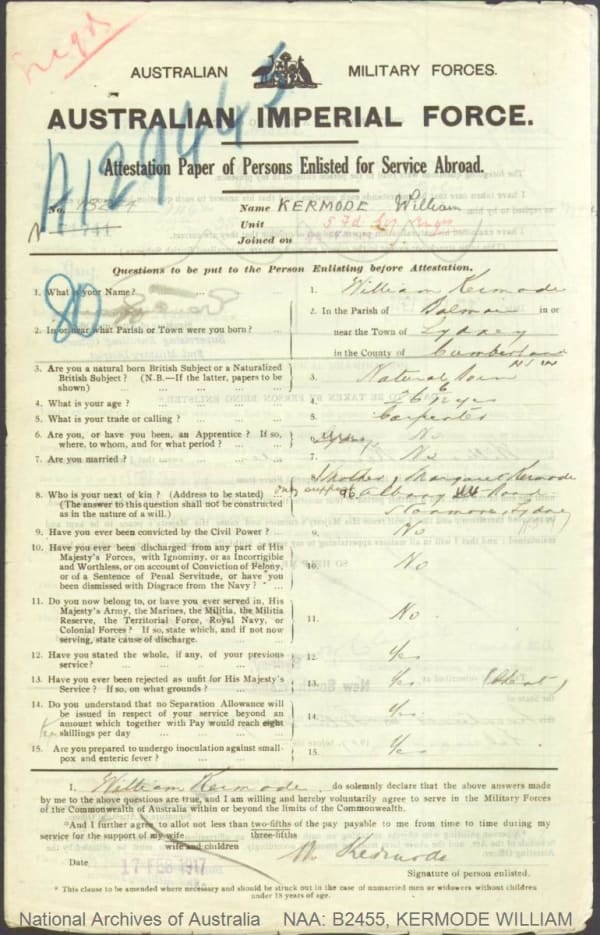 AUSTRALIAN MILITARY FORCES.
AUSTRALIAN IMPERIAL FORCE.
Attestation Paper of Persons Enlisted for Service Abroad.
No. Name KERMODE William
Unit
Joined on
Questions to be put to the Person Enlisting before Attestation.
80
1. What is your Name? ... ... ... 1. William Kermode
2. In or near what Parish or Town were you born? ... 2. In the Parish of Balmain in or
near the Town of Sydney
in the County of Cumberland
NSW
3. Are you a natural born British Subject or a Naturalized
British Subject? (N.B.—If the latter, papers to be
shown) ... ... ... ... 3. Natural Born
4. What is your age? ... ... ... 4.
5. What is your trade or calling? ... ... ... 5. Carpenter
6. Are you, or have you been, an Apprentice? If so,
where, to whom, and for what period? ... ... 6. No
7. Are you married? ... ... ... ... 7. No
8. Who is your next of kin? (Address to be stated) ...
(The answer to this question shall not be constructed
as in the nature of a will.)
Mother, Margaret Kermode
96 Albany Road
Stanmore, Sydney
9. Have you ever been convicted by the Civil Power? ... 9. No
10. Have you ever been discharged from any part of His
Majesty's Forces, with Ignominy, or as Incorrigible
and Worthless, or on account of Conviction of Felony,
or of a Sentence of Penal Servitude, or have you
been dismissed with Disgrace from the Navy? ... 10. No
11. Do you now belong to, or have you ever served in, His
Majesty's Army, the Marines, the Militia, the Militia
Reserve, the Territorial Force, Royal Navy, or
Colonial Forces? If so, state which, and if not now
serving, state cause of discharge. 11. No.
12. Have you stated the whole, if any, of your previous
service? ... ... ... ... 12. Yes
13. Have you ever been rejected as unfit for His Majesty's
Service? If so, on what grounds? ... ... 13. Yes
14. Do you understand that no Separation Allowance will
be issued in respect of your service beyond an
amount which together with Pay would reach eight
shillings per day ... ... ... 14. Yes
15. Are you prepared to undergo inoculation against small-
pox and enteric fever? ... ... ... 15. Yes
I, William Kermode. do solemnly declare that the above answers made
by me to the above questions are true, and I am willing and hereby voluntarily agree to serve in the Military Forces
of the Commonwealth of Australia within or beyond the limits of the Commonwealth.
*And I further agree to allot not less than two-fifths of the pay payable to me from time to time during my
three-fifths
service for the support of my wife
wife and children
W. Kermode
Date 17 FEB 1917
Signature of person enlisted.
* This clause to be amended where necessary and should be struck out in the case of unmarried men or widowers without children
under 18 years of age.
National Archives of Australia NAA: B2455, KERMODE WILLIAM